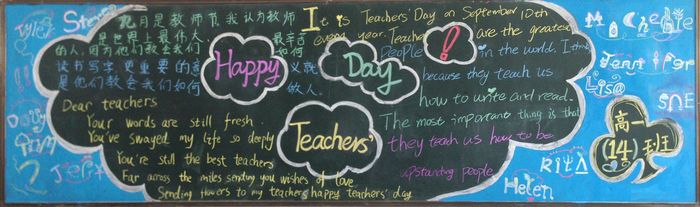 Tyler
Steven
九月是教师节我认为教师
是世界上最伟大、最辛苦
的人,因为他们教会我们如何
读书写字更重要的意义就
是他们教会我们如何做人。
Happy
Day
Teachers'
!
It is Teachers' Day on September 10th
every year. Teachers are the greatest
people in the world. I think
because they teach us
how to write and read.
The most important thing is that
they teach us how to be
upstanding people
Dear teachers
Your words are still fresh.
You've swayed my life so deeply
You're still the best teachers
Far across the miles sending you wishes of love
Sending flowers to my teachers happy teachers' day
Michelle
Jennifer
Lisa
SUE
RITA
Helen
Jeff
高一
(14)班